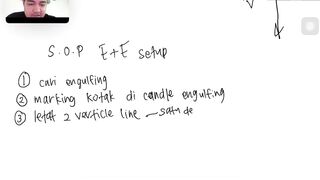 S.O.P E+E setup
① cari engulfing
② marking kotak di candle engulfing
③ letak 2 varticle line — satu de